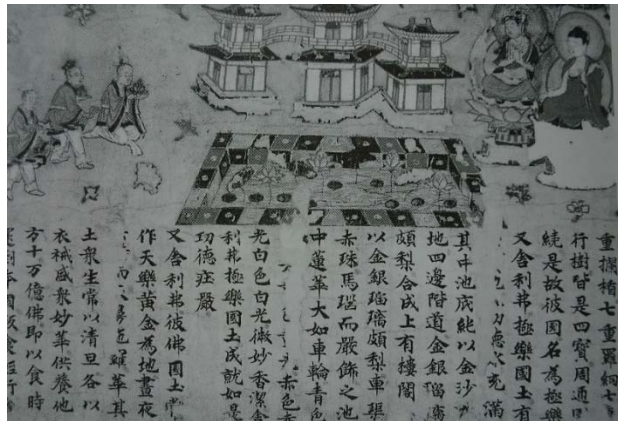 重攔楯七重羅網七
行樹皆是四寶周通
繞是故彼國名為極樂
又舍利弗極樂國土有
充滿
其中池底純以金沙
地四邊階道金銀瑠璃
頗梨合成上有樓閣
以金銀瑠璃頗梨車𤦲
赤珠馬瑙而嚴飾之池
中蓮華大如車輪青色
赤色
光白色白光微妙香潔舍
利弗極樂國土成就如是
功德莊嚴
又舍利弗彼佛國土常
作天樂黃金為地晝夜
而羅華其
土衆生常以清旦各以
衣裓盛衆妙華供養他
方十万億佛即以食時
本國飯食經行